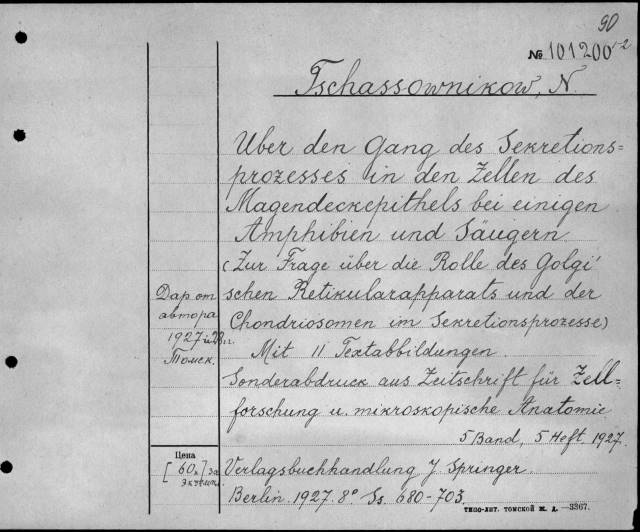 90
№ 101200 1-2
Tschassownikow, N.
Über den Gang des Sekretions=
prozesses in den Zellen des
Magendeckepithels bei einigen
Amphibien und Säugern
(Zur Frage über die Rolle des Golgi'
schen Retikularapparats und der
Chondriosomen im Sekretionsprozesse)
Mit 11 Textabbildungen.
Sonderabdruck aus Zeitschrift für Zell=
forschung u. mikroskopische Anatomie
5 Band, 5 Heft. 1927.
Verlagsbuchhandlung J. Springer.
Berlin. 1927. 8° Ss. 680-703.
Дар от
автора
1927 и 28 гг.
Томск.
Цена
[60 к.] за
экземп.
ТИПО-ЛИТ. ТОМСКОЙ Ж. Д. —3367.